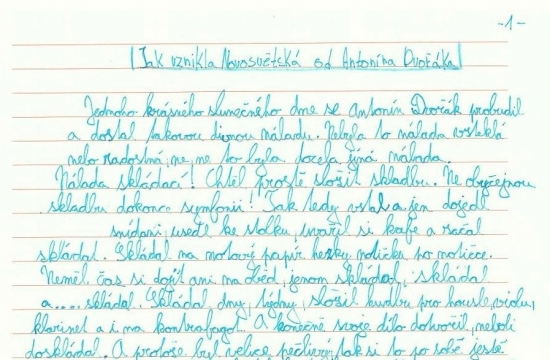 -1-
Jak vznikla Novosvětská od Antonína Dvořáka
Jednoho krásného slunečného dne se Antonín Dvořák probudil
a dostal takovou divnou náladu. Nebyla to nálada vzteklá
nebo radostná, ne, ne to byla docela jiná nálada.
Nálada skládací! Chtěl prostě složit skladbu. Ne obyčejnou
skladbu dokonce symfonii! Tak tedy vstal a jen dojedl
snídani usedl ke stolku uvařil si kafe a začal
skládat. Skládal na notový papír hezky notičku po notičce.
Neměl čas si dojít ani na oběd, jenom skládal, skládal
a.... skládal. Skládal dny, týdny, složil hudbu pro housle, violu,
klarinet a i na kontrafagot. A konečně svoje dílo dotvořil, neboli
doskládal. A protože byl velice pečlivý, tak si to po sobě ještě